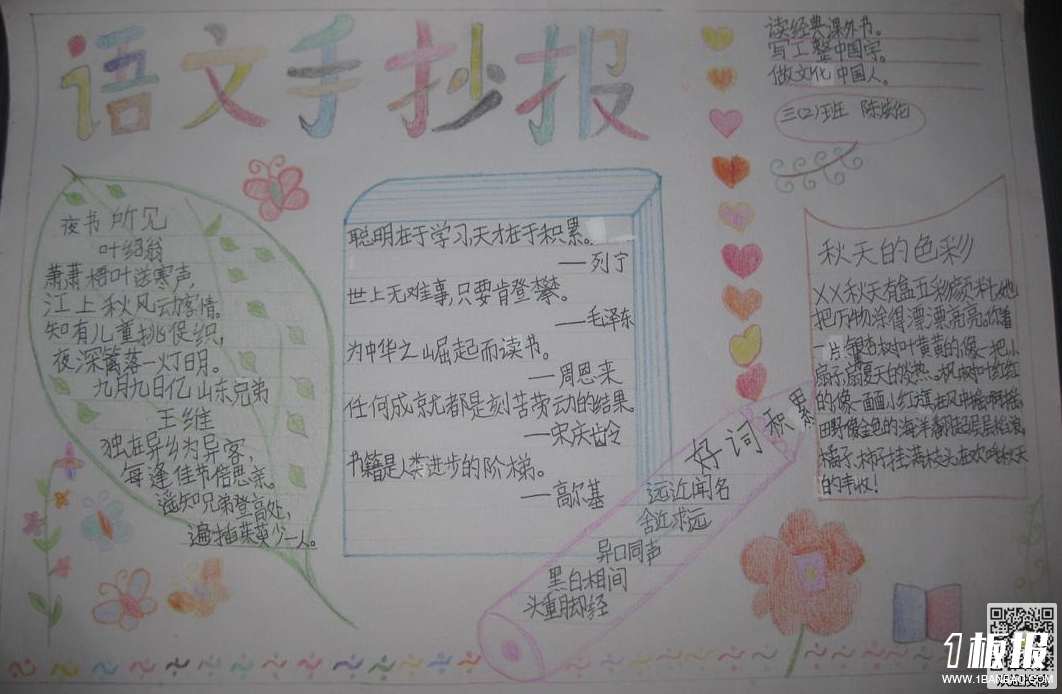 语文手抄报
读经典课外书。
写工整中国字。
做文化中国人。
三(2)班 陈
夜书所见
叶绍翁
萧萧梧叶送寒声,
江上秋风动客情。
知有儿童挑促织,
夜深篱落一灯明。
九月九日亿山东兄弟
王维
独在异乡为异客,
每逢佳节倍思亲。
遥知兄弟登高处,
遍插茱萸少一人。
聪明在于学习,天才在于积累。
——列宁
世上无难事,只要肯登攀。
——毛泽东
为中华之崛起而读书。
——周恩来
任何成就都是刻苦劳动的结果。
——宋庆龄
书籍是人类进步的阶梯。
——高尔基
好词积累
远近闻名
舍近求远
异口同声
黑白相间
头重脚轻
秋天的色彩
XX秋天有盒五彩颜料,她
把万物涂得漂漂亮亮。你看
一片银杏树叶黄黄的像一把小
扇子,扇夏天的炎热。枫树叶红红
的像一面面小红旗在风中摇啊摇,
田野像金色的海洋翻起层层松浪,
橘子、柿子挂满枝头在欢唱秋天
的丰收!
1板报
WWW.1BANBAO.COM
欢迎投稿